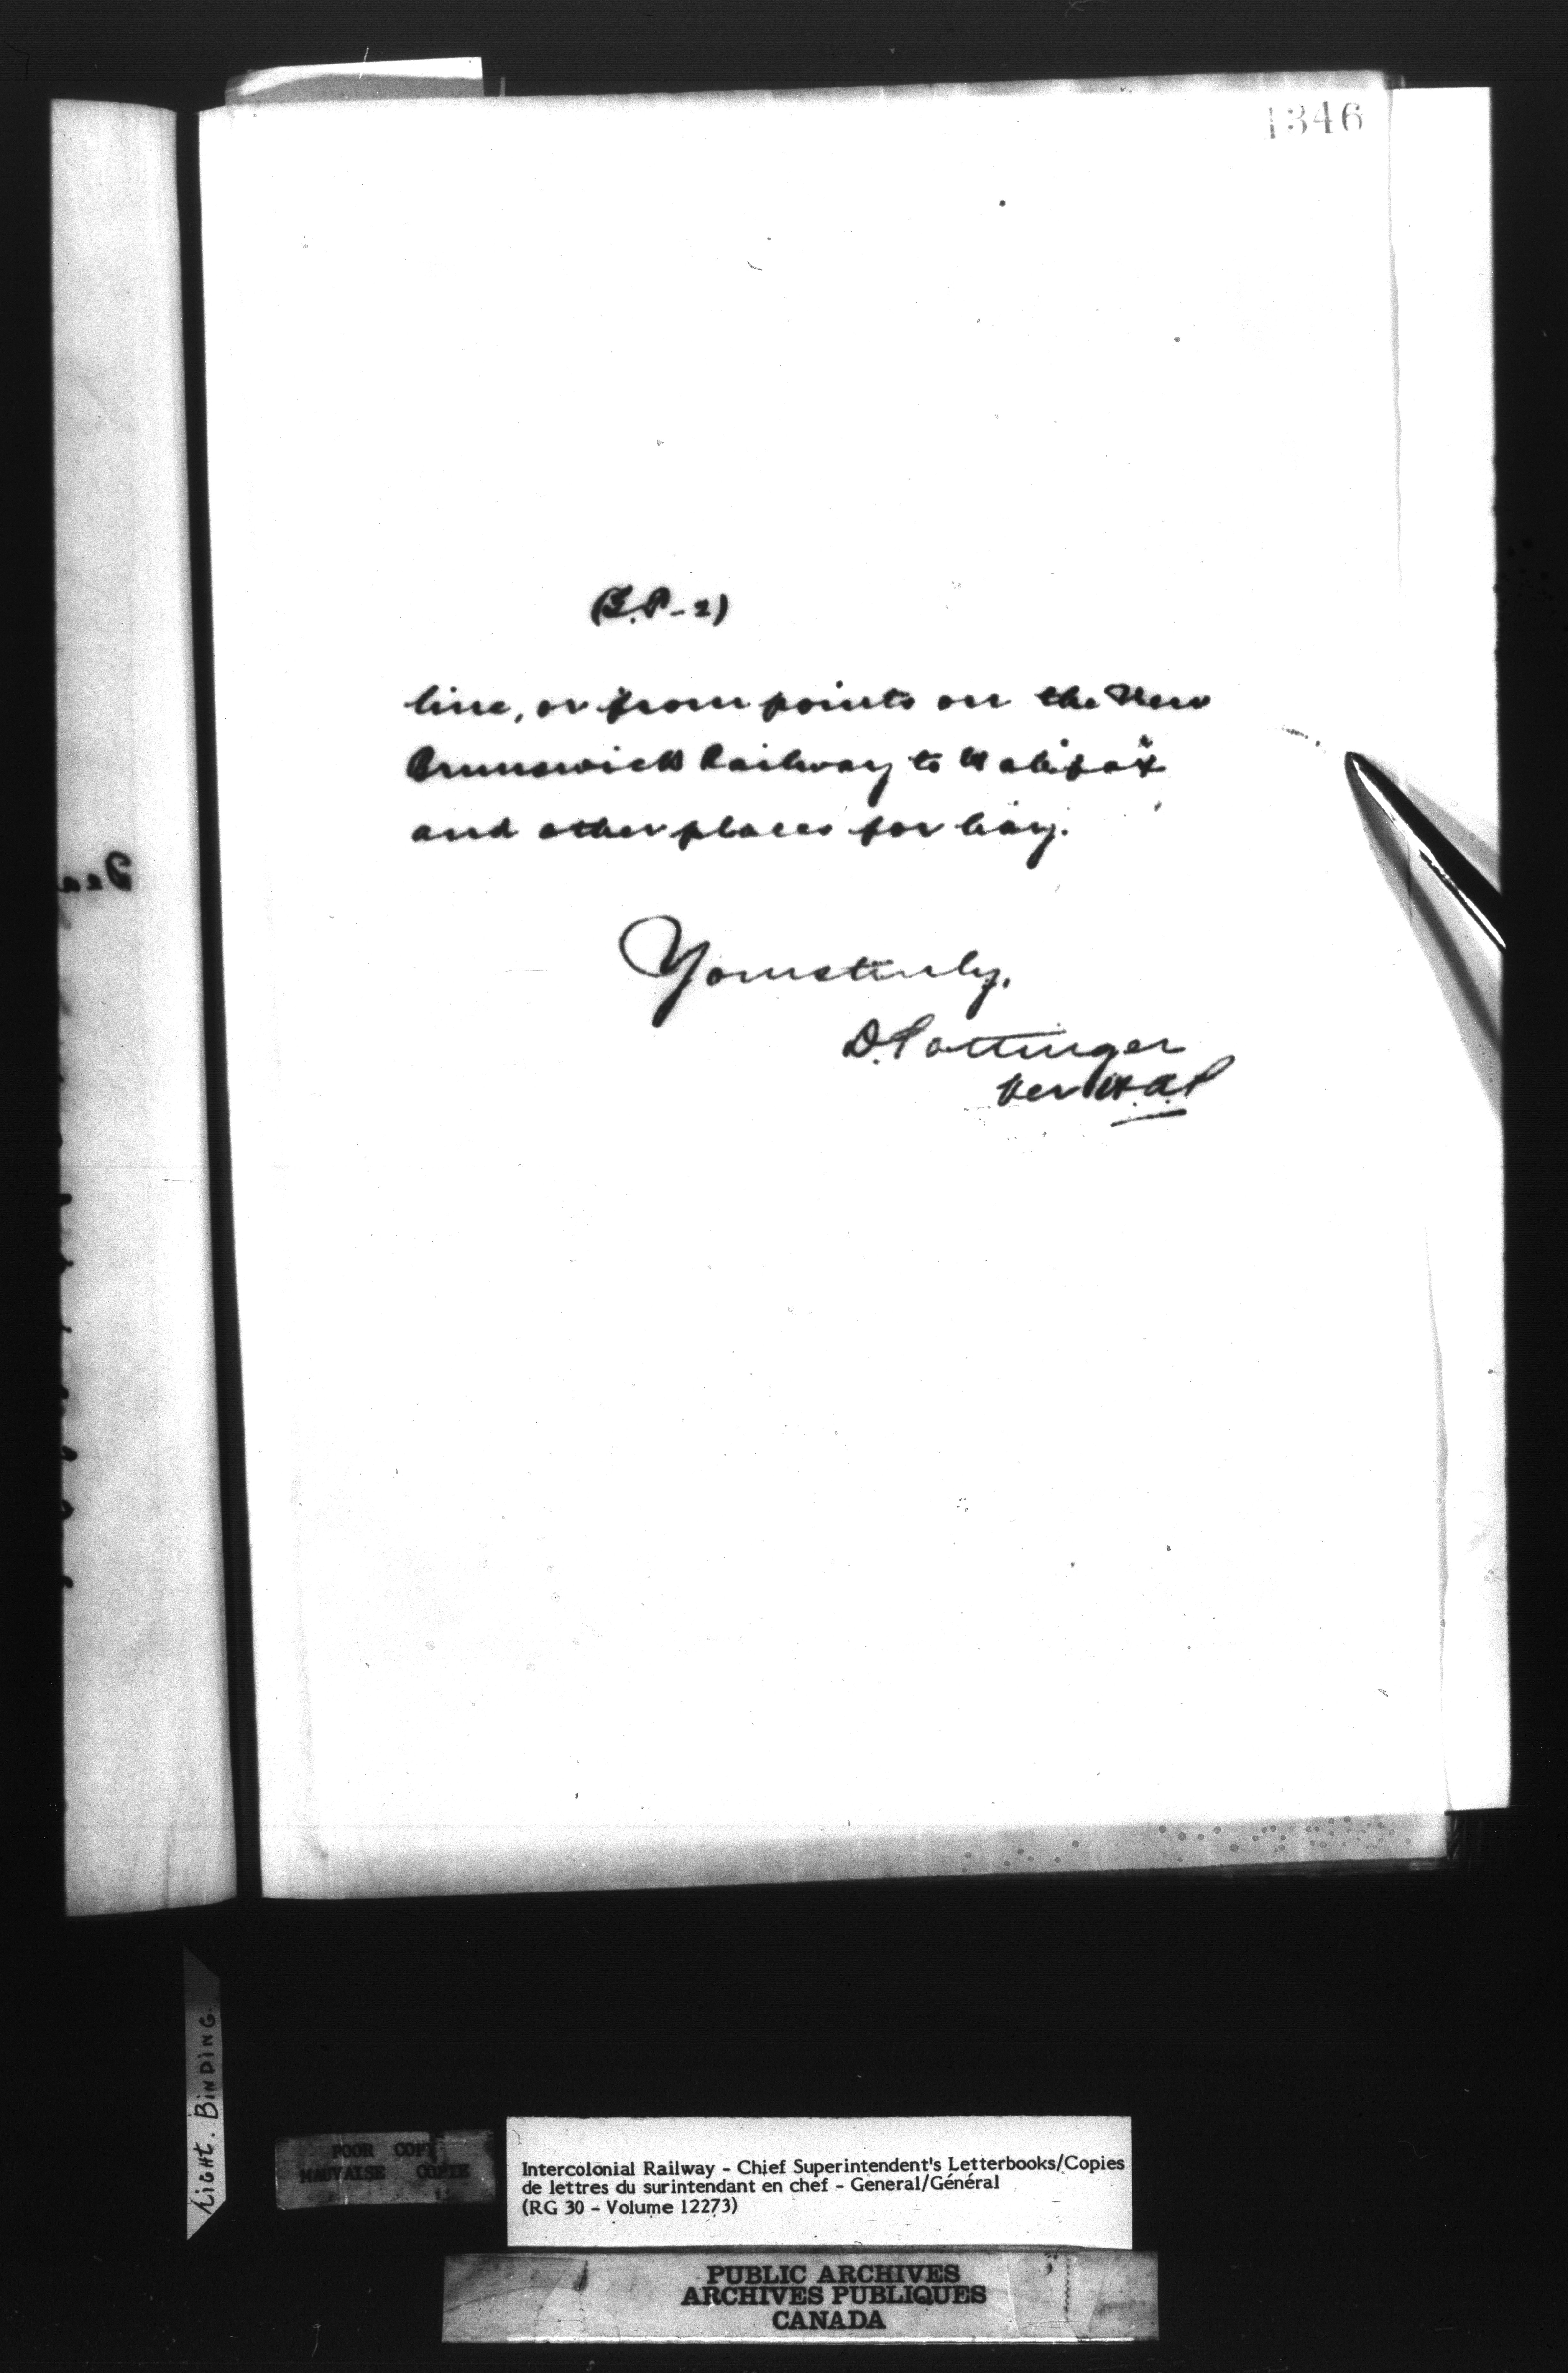 1346
line, or from points on the New
Brunswick Railway to Halifax
and other places for hay.
Yours truly,
D. Pottinger
Per
Dea
Light. BINDING.
POOR COPY
MAUVAISE COPIE
Intercolonial Railway - Chief Superintendent's Letterbooks/Copies
de lettres du surintendant en chef - General/Général
(RG 30 - Volume 12273)
PUBLIC ARCHIVES
ARCHIVES PUBLIQUES
CANADA